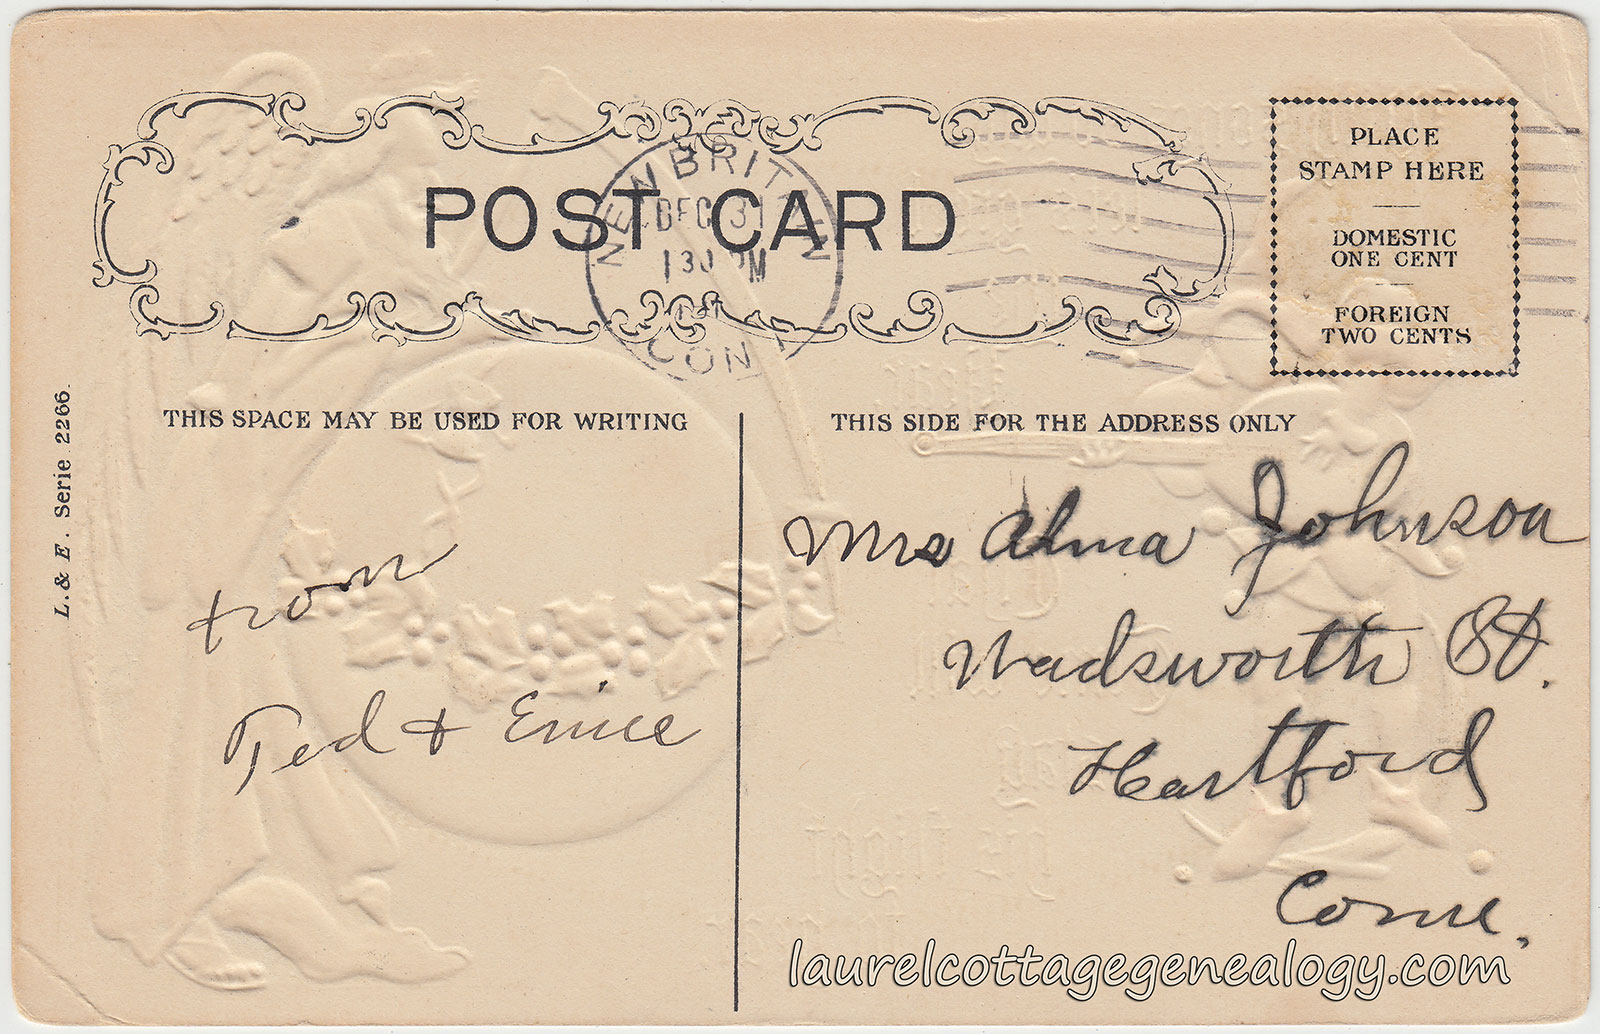 POST CARD
NEW BRITAIN
DEC 31
130 PM
CONN
PLACE
STAMP HERE
DOMESTIC
ONE CENT
FOREIGN
TWO CENTS
L. & E. Serie 2266.
THIS SPACE MAY BE USED FOR WRITING
from
Ted & Enice
THIS SIDE FOR THE ADDRESS ONLY
Mrs Alma Johnson
Wadsworth St.
Hartford
Conn.
his flight
laurelcottagegenealogy.com